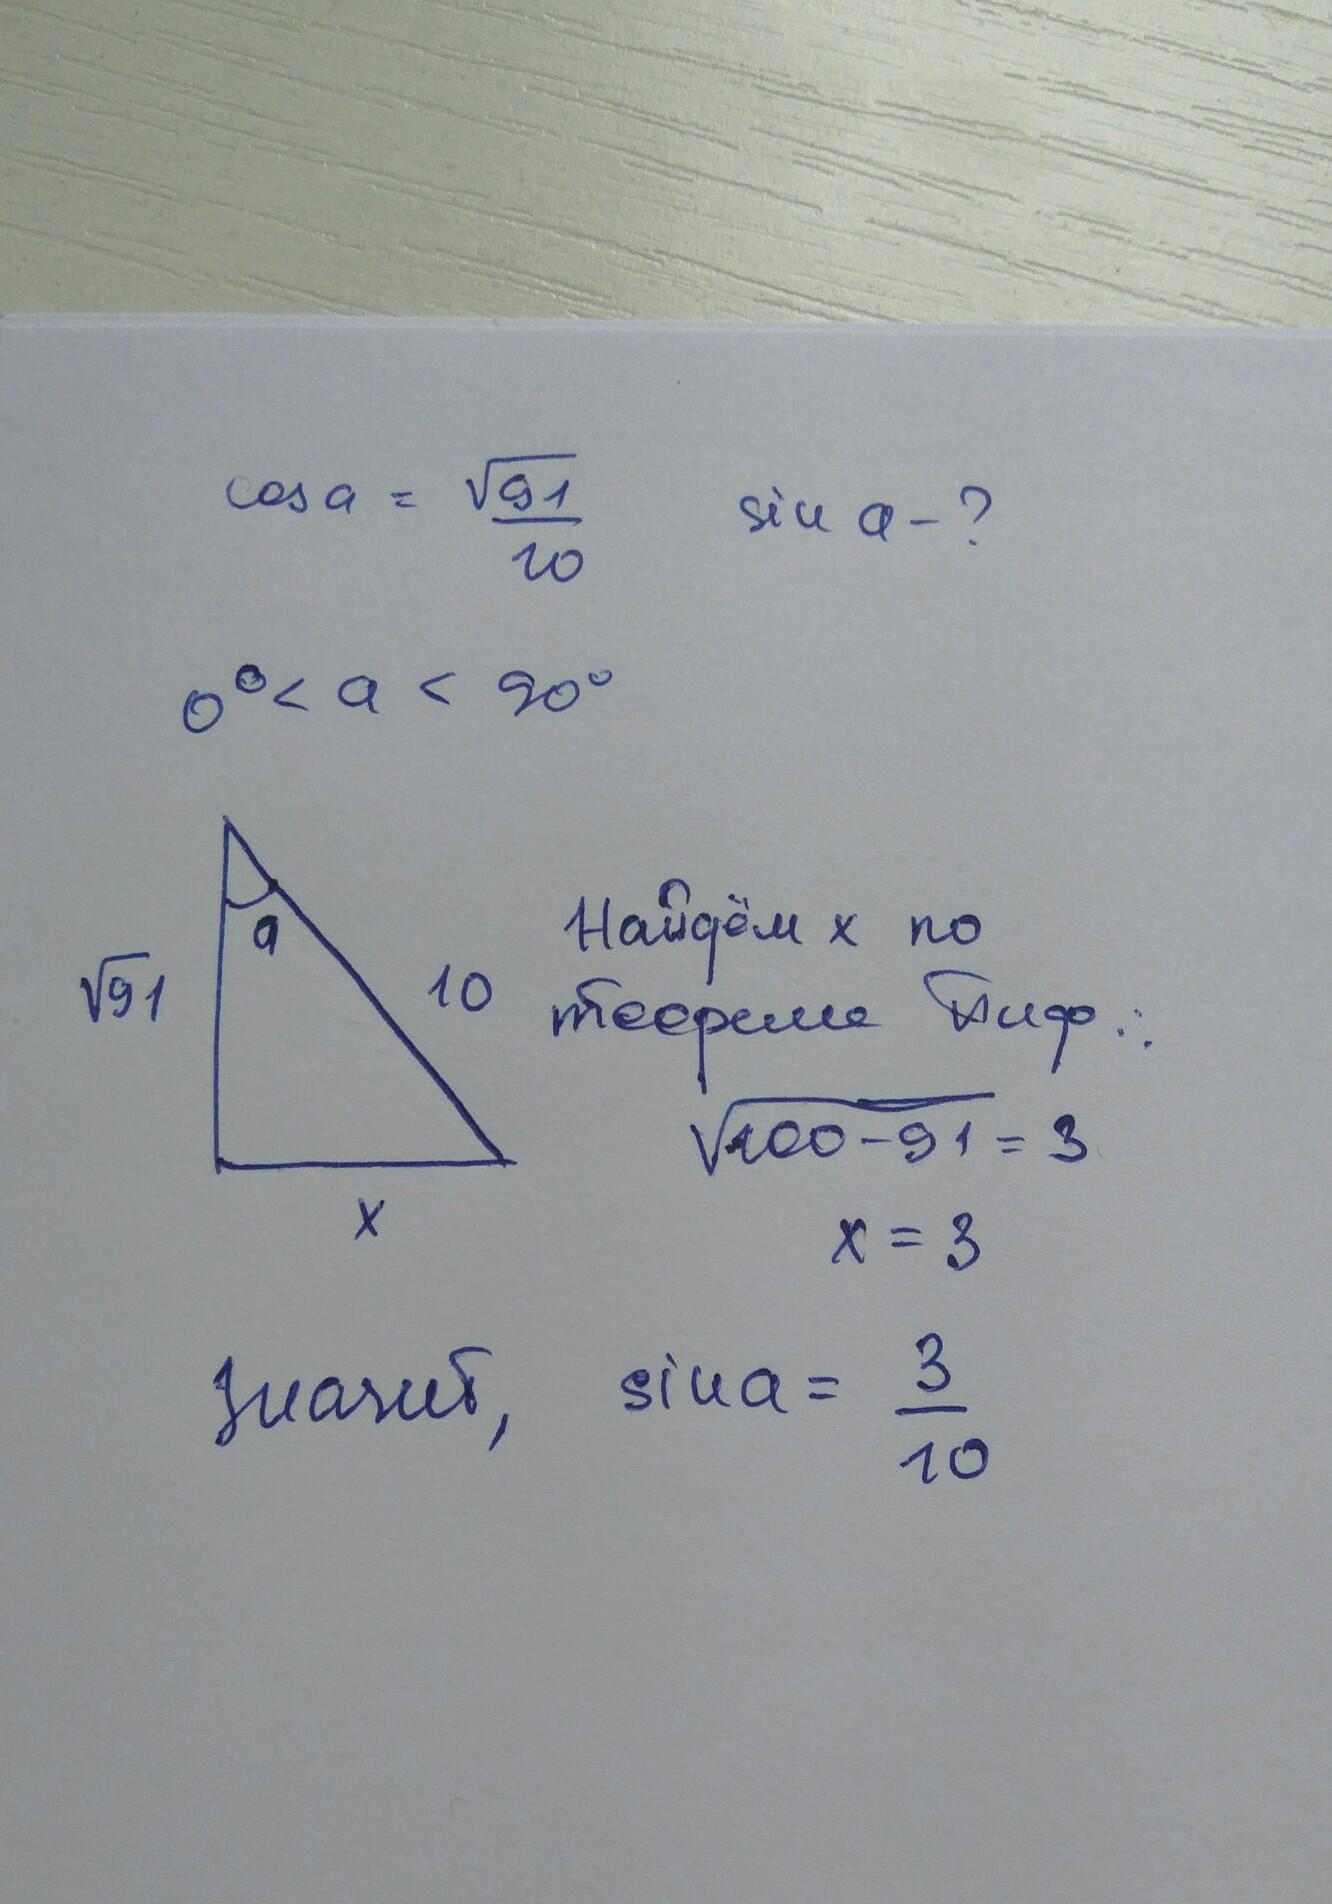 cos a = √91/10 sin a - ?
0° < a < 90°
a
√91
10
x
Найдём x по
теореме Пиф.:
√100-91 = 3
x = 3
Значит, sin a = 3/10